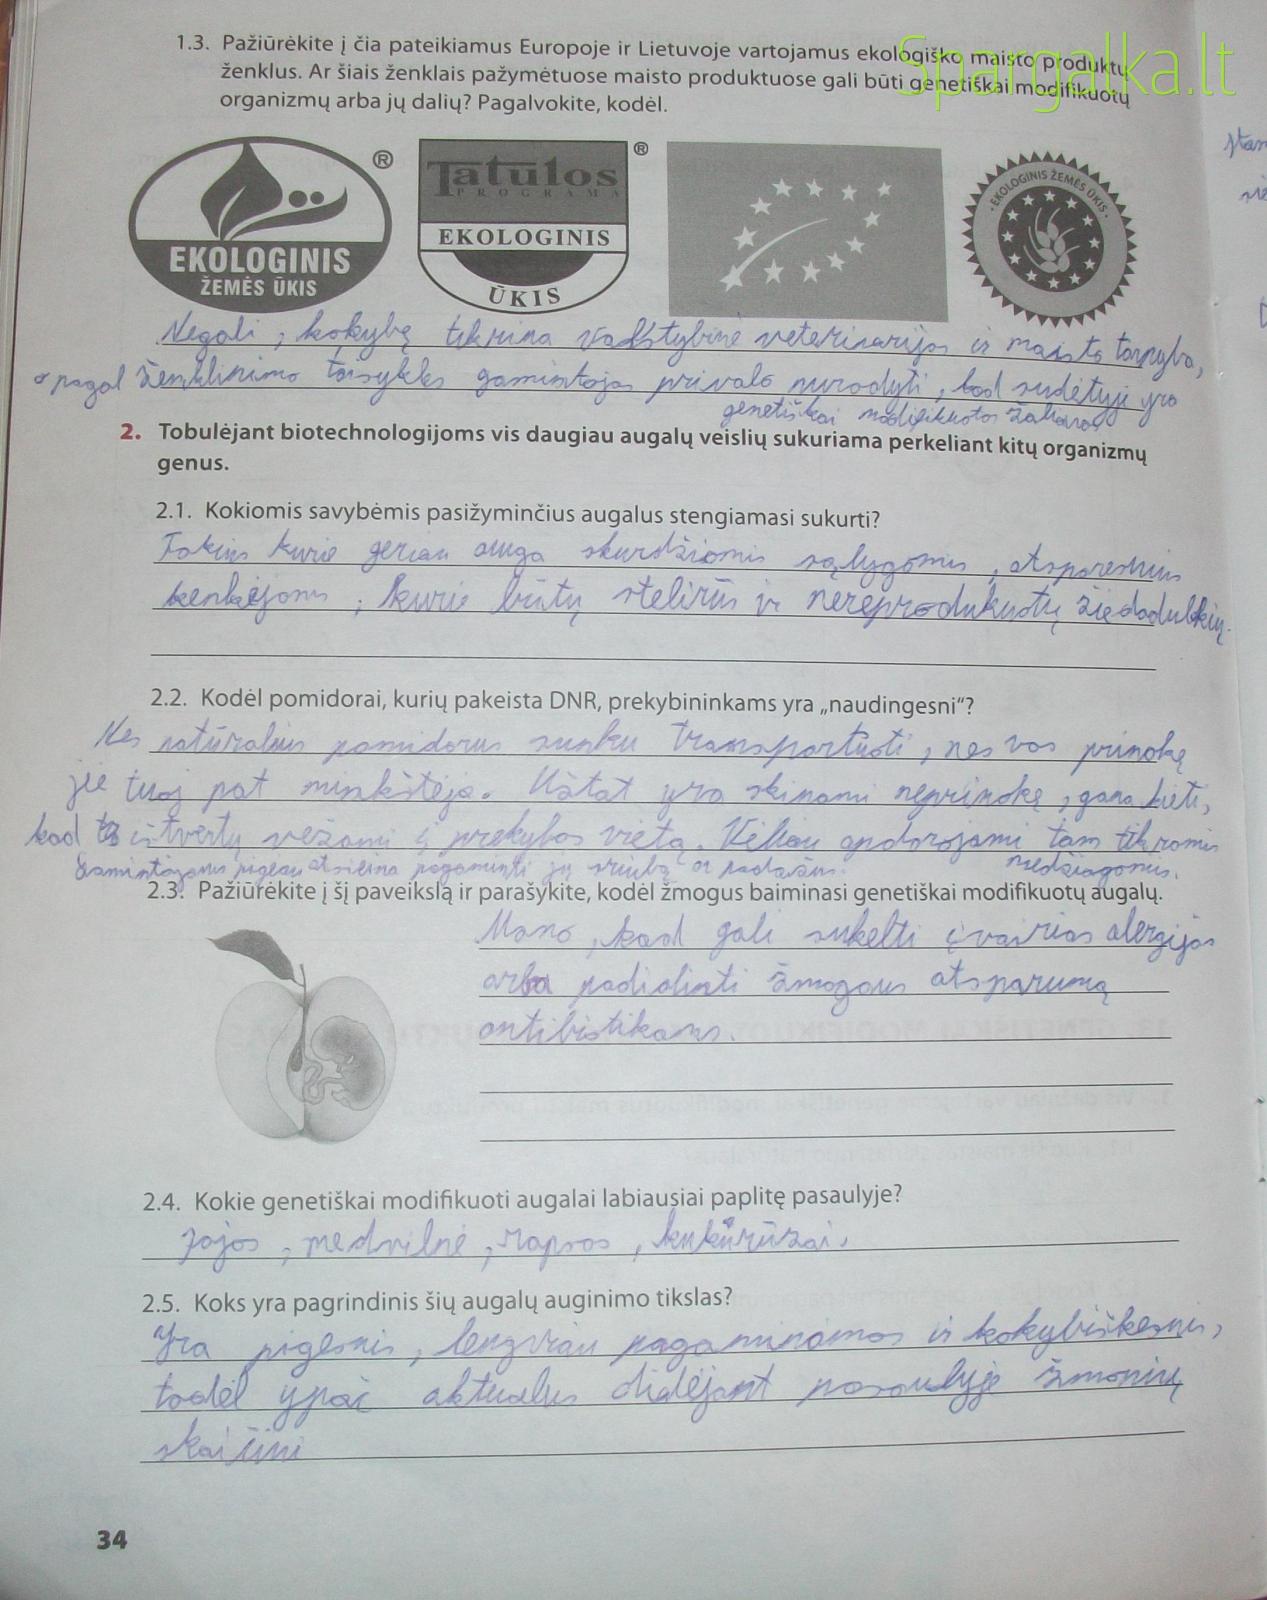 Spargalka.lt
1.3. Pažiūrėkite į čia pateikiamus Europoje ir Lietuvoje vartojamus ekologiško maisto produktų
ženklus. Ar šiais ženklais pažymėtuose maisto produktuose gali būti genetiškai modifikuotų
organizmų arba jų dalių? Pagalvokite, kodėl.
®
EKOLOGINIS
ŽEMĖS ŪKIS
®
Tatulos
PROGRAMA
EKOLOGINIS
ŪKIS
EKOLOGINIS ŽEMĖS ŪKIS
Negali, kokybę tikrina valstybinė veterinarijos ir maisto tarnyba,
o pagal ženklinimo taisykles gamintojas privalo nurodyti, kad sudėtyje yra
genetiškai modifikuotos žaliavos
2. Tobulėjant biotechnologijoms vis daugiau augalų veislių sukuriama perkeliant kitų organizmų
genus.
2.1. Kokiomis savybėmis pasižyminčius augalus stengiamasi sukurti?
Tokius kurie geriau auga skurdžiomis sąlygomis, atsparesnius
kenkėjams, kurie būtų sterilūs ir nereprodukuotų žiedadulkių.
2.2. Kodėl pomidorai, kurių pakeista DNR, prekybininkams yra „naudingesni“?
Nes natūralius pomidorus sunku transportuoti, nes vos prinokę
jie tuoj pat minkštėja. Užtat yra skinami neprinokę, gana kieti,
kad ištvertų vežami į prekybos vietą. Vėliau apdorojami tam tikromis
medžiagomis.
Gamintojams pigiau atsieina pagaminti jų sriubą ar padažus.
2.3. Pažiūrėkite į šį paveikslą ir parašykite, kodėl žmogus baiminasi genetiškai modifikuotų augalų.
Mano, kad gali sukelti įvairias alergijas
arba padidinti žmogaus atsparumą
antibiotikams.
2.4. Kokie genetiškai modifikuoti augalai labiausiai paplitę pasaulyje?
Sojos, medvilnė, rapsas, kukurūzai.
2.5. Koks yra pagrindinis šių augalų auginimo tikslas?
Yra pigesnis, lengviau pagaminamas ir kokybiškesnis,
todėl ypač aktualus didėjant pasaulyje žmonių
skaičiui
34